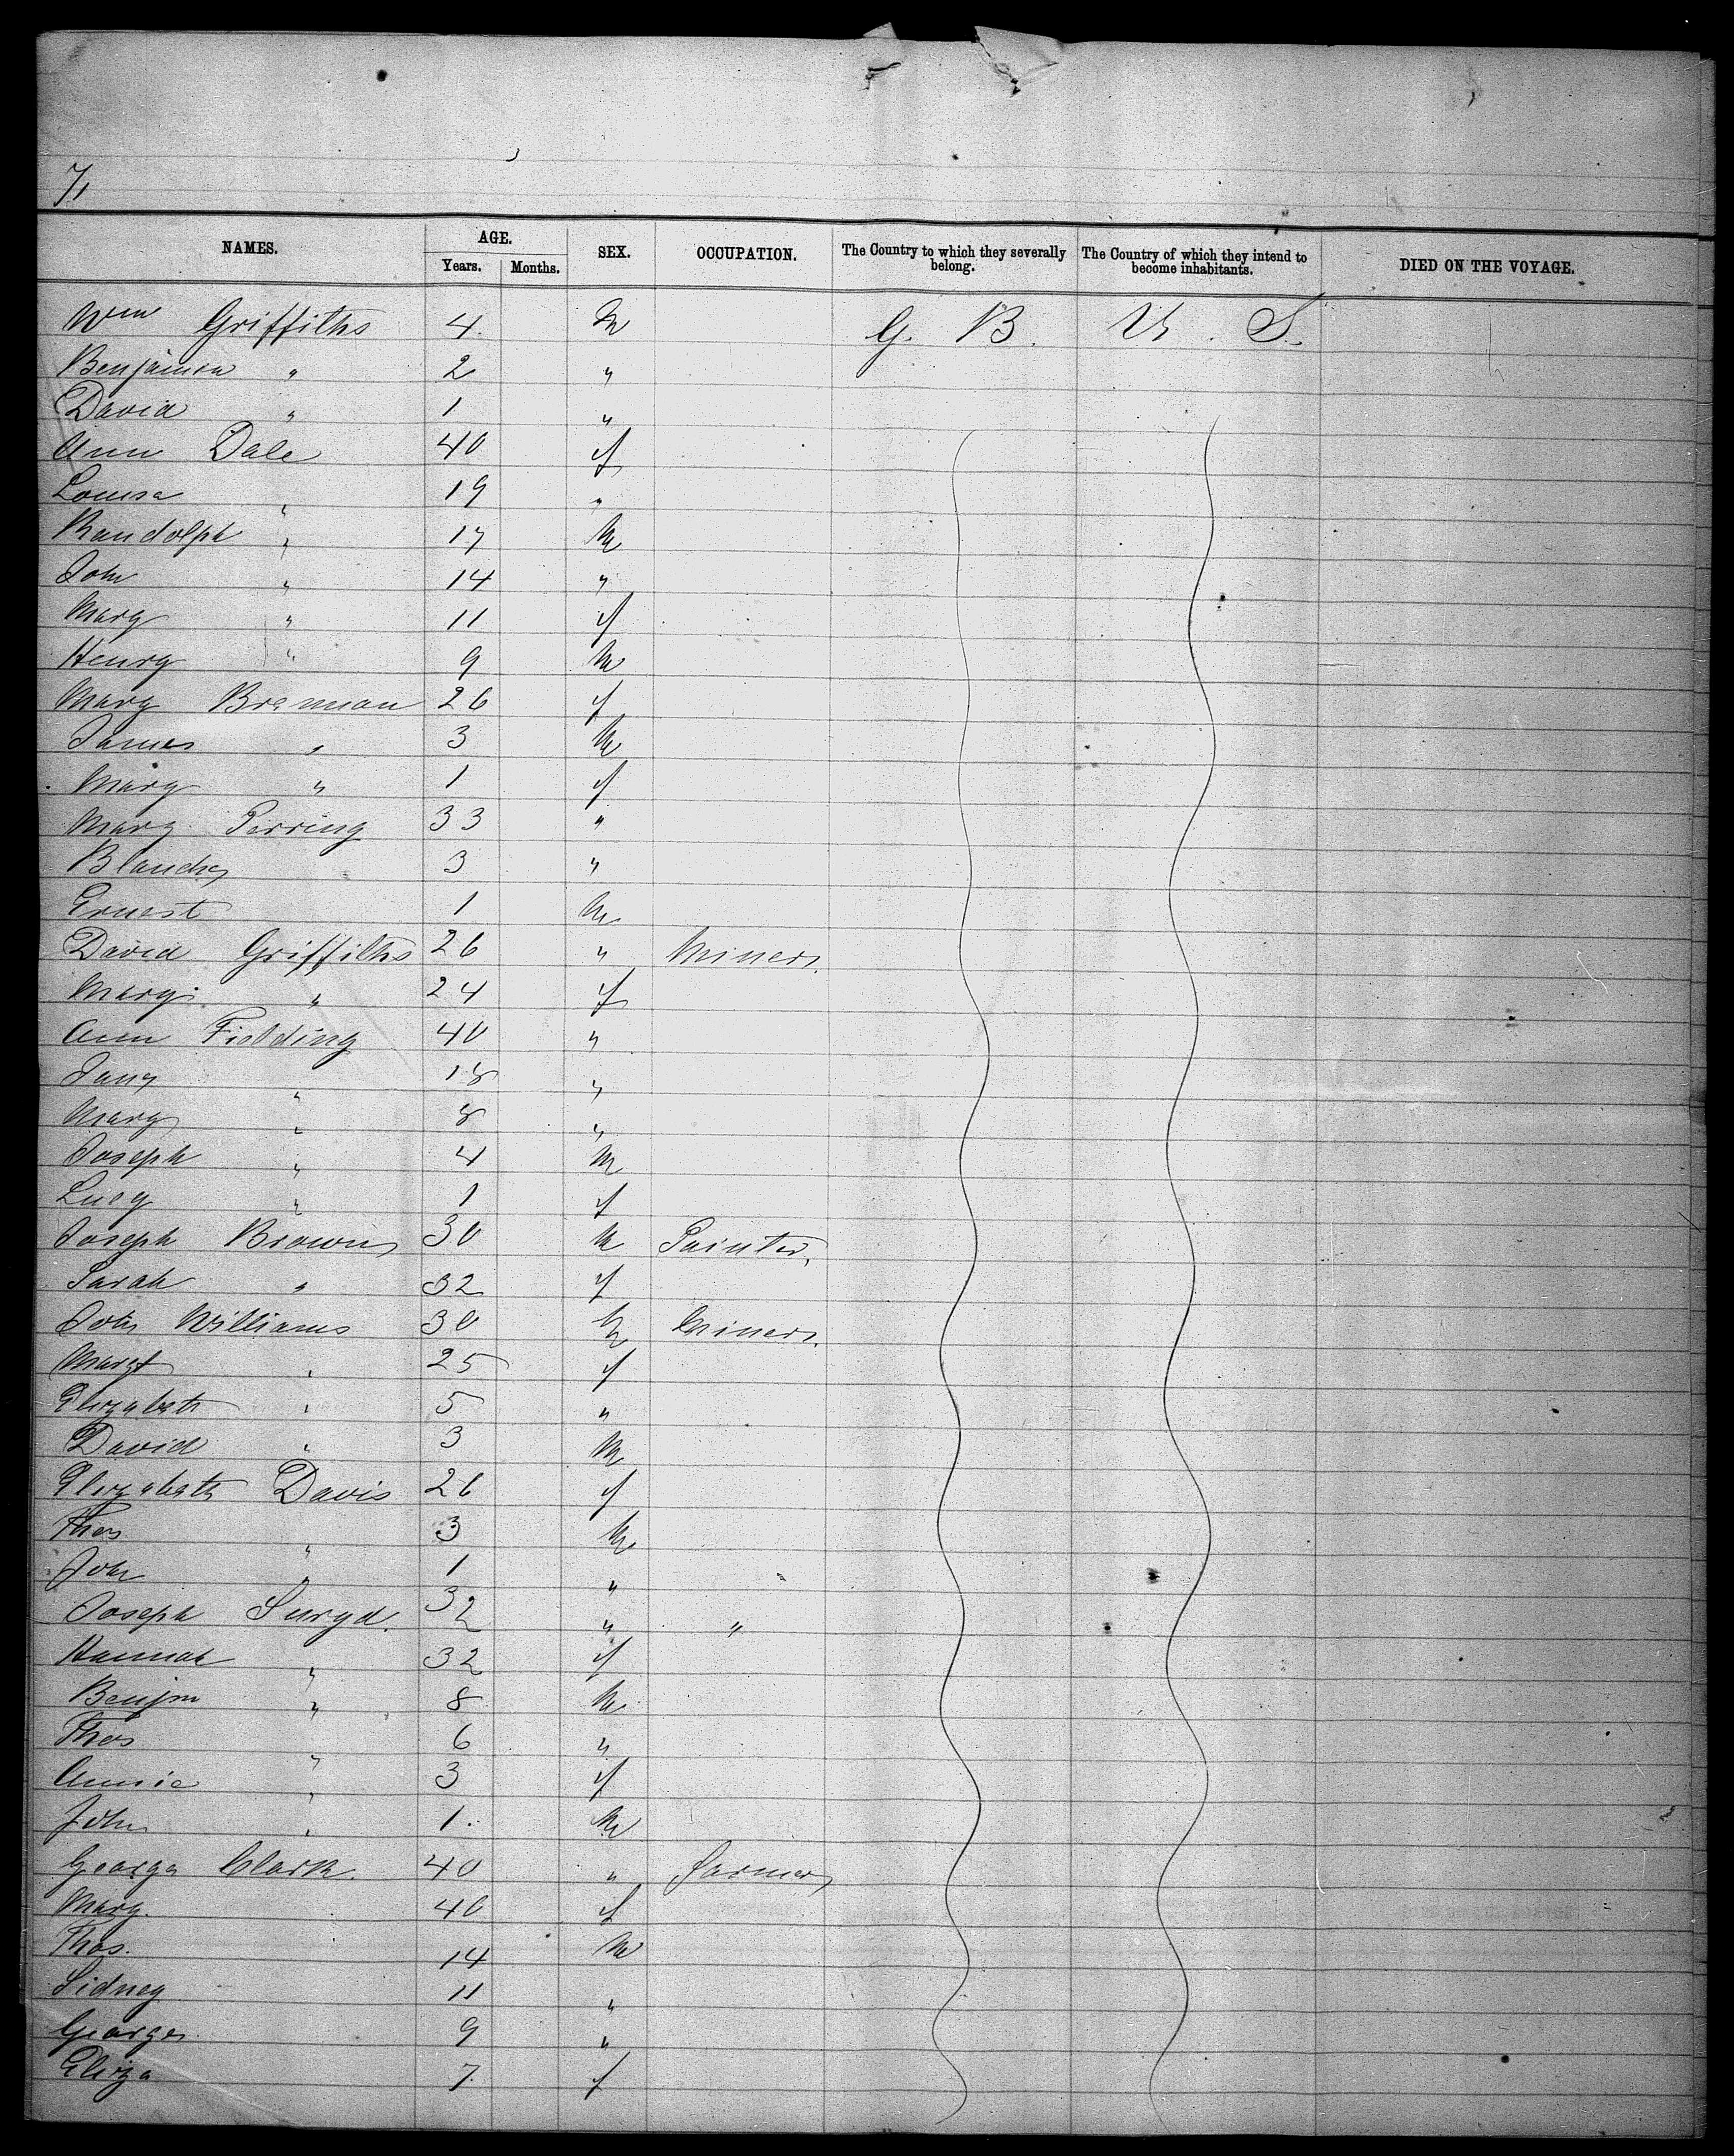 7,
NAMES. AGE. SEX. OCCUPATION. The Country to which they severally belong. The Country of which they intend to become inhabitants. DIED ON THE VOYAGE.
Years. Months.
Wm Griffiths 4 M G. B. U. S.
Benjamin " 2 "
David " 1 "
Ann Dale 40 f
Louisa " 19 "
Randolph " 17 M
John " 14 "
Mary " 11 f
Henry " 9 M
Mary Brennan 26 f
James " 3 M
Mary " 1 f
Mary Perring 33 "
Blanche 3 "
Ernest 1 M
David Griffiths 26 " Miner
Mary " 24 f
Ann Fielding 40 "
Jane " 18 "
Mary " 8 "
Joseph " 4 M
Lucy " 1 f
Joseph Brown 30 M Painter
Sarah " 32 f
John Williams 30 M Miner
Margt " 25 f
Elizabeth " 5 "
David " 3 M
Elizabeth Davis 26 f
Thos " 3 M
John " 1 "
Joseph 32 " "
Hannah " 32 f
Benjm " 8 M
Thos " 6 "
Annie " 3 f
John " 1 M
George Clark. 40 " Farmer
Mary 40 f
Thos. 14 M
Sidney 11 "
George 9 "
Eliza 7 f